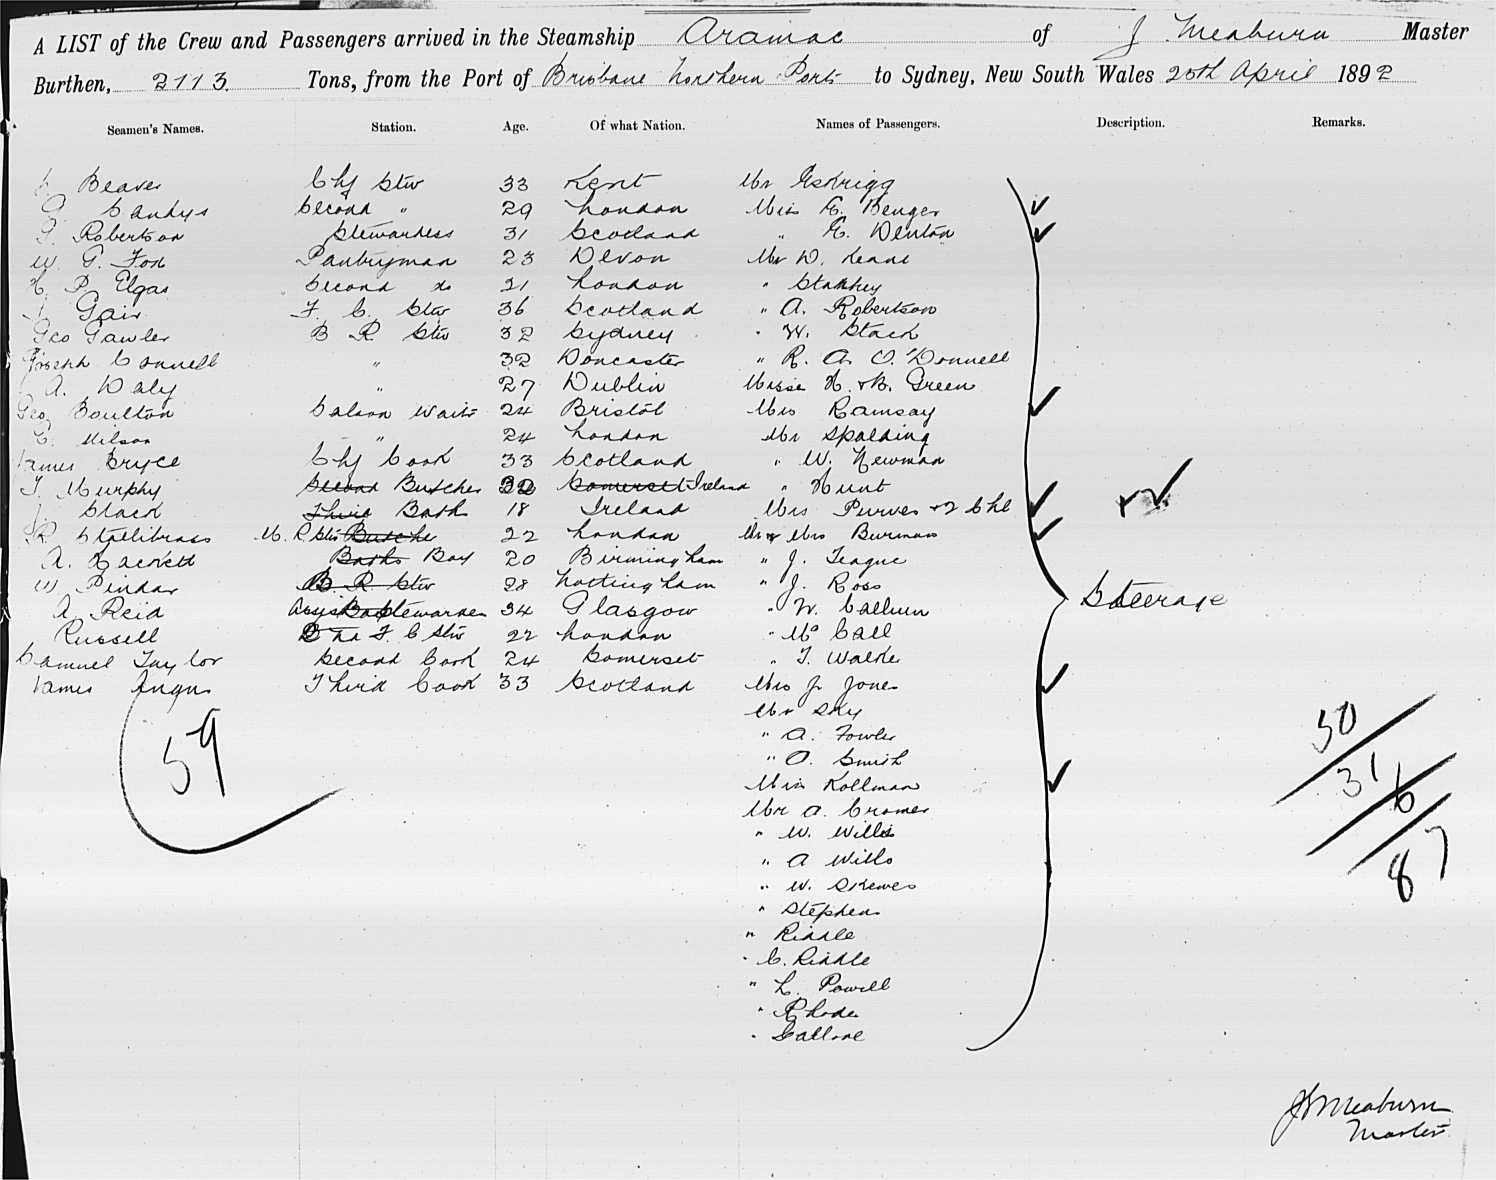 A LIST of the Crew and Passengers arrived in the Steamship Aramac of J Meaburn Master
Burthen, 2113 Tons, from the Port of Brisbane Northern Ports to Sydney, New South Wales 20th April 1892
Seamen's Names. Station. Age. Of what Nation. Names of Passengers. Description. Remarks.
Beaver Chf Stw 33 Kent Mr
Sandys Second " 29 London Miss E. Benger
Robertson Stewardess 31 Scotland " E. Denton
W. G. Fox Pantryman 23 Devon Mr D. Leane
H P. Elgar Second do 21 London "
Gair F. C. Stw 36 Scotland " A. Robertson
Geo Gawler B R Stw 32 Sydney " W. Stack
Joseph Connell " 32 Doncaster " R. A. O'Donnell
A. Daly " 27 Dublin Misses H. & B. Green
Geo Boulton Saloon Waitr 24 Bristol Mrs Ramsay
C. Wilson " 24 London Mr Spalding
James Bryce Chf Cook 33 Scotland " W. Newman
T. Murphy Second Butcher 32 Somerset Ireland " Hunt
J. Stack Third Bath 18 Ireland Mrs Purves & 2 Chl
R Stallibrass M. R Stw Butcher 22 London Mr & Mrs Burman
A. Hackett Baths Boy 20 Birmingham " J. Teague
W Pindar B. R Stw 28 Nottingham " J. Ross
A Reid Stewardess 34 Glasgow " W. Calhum
Steerage
Russell F. C Stw 22 London " Mc Call
Samuel Taylor Second Cook 24 Somerset " T. Walker
James Angus Third Cook 33 Scotland Mrs J. Jones
Mr Sky
" A. Fowler
" A. Smith
Miss Kollman
Mr A. Cromer
" W. Wills
" A Wills
" W. Skewes
" Stephens
" Riddle
" C. Riddle
" L. Powell
" Rhodes
59
50
31
6
87
J Meaburn
Master